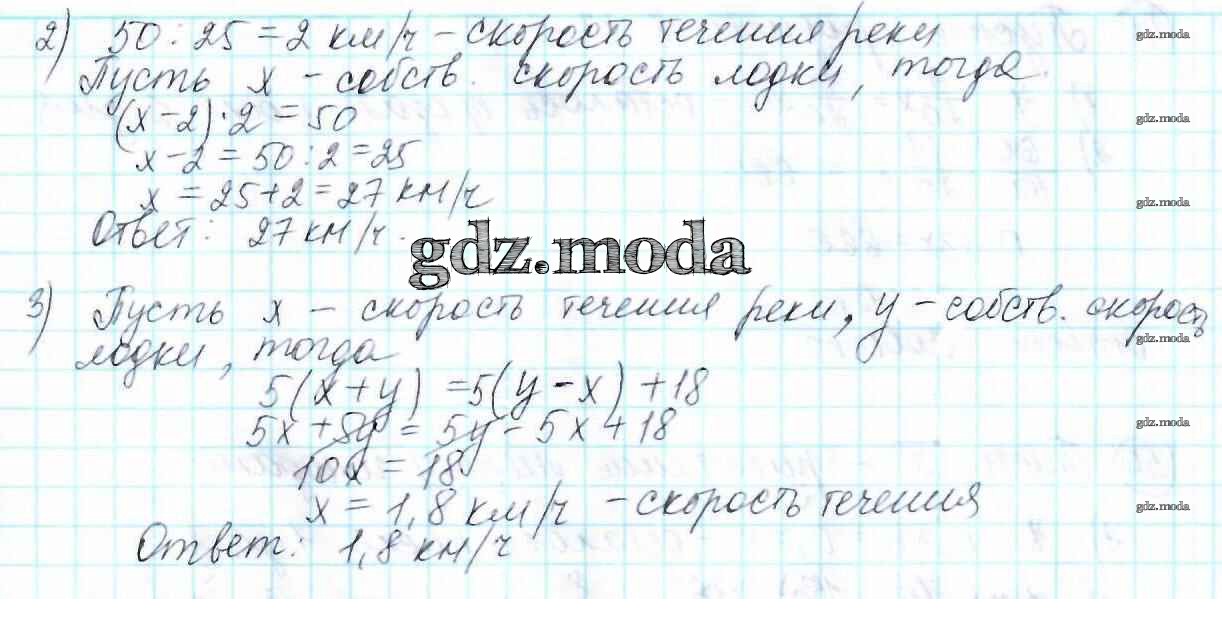 2) 50 : 25 = 2 км/ч – скорость течения реки
gdz.moda
Пусть х – собств. скорость лодки, тогда
(х – 2) · 2 = 50
gdz.moda
х – 2 = 50 : 2 = 25
х = 25 + 2 = 27 км/ч
gdz.moda
Ответ: 27 км/ч.
gdz.moda
3) Пусть х – скорость течения реки, у – собств. скорость
gdz.moda
лодки, тогда
5(х + у) = 5(у – х) + 18
5х + 5у = 5у – 5х + 18
gdz.moda
10х = 18
х = 1,8 км/ч – скорость течения
gdz.moda
Ответ: 1,8 км/ч